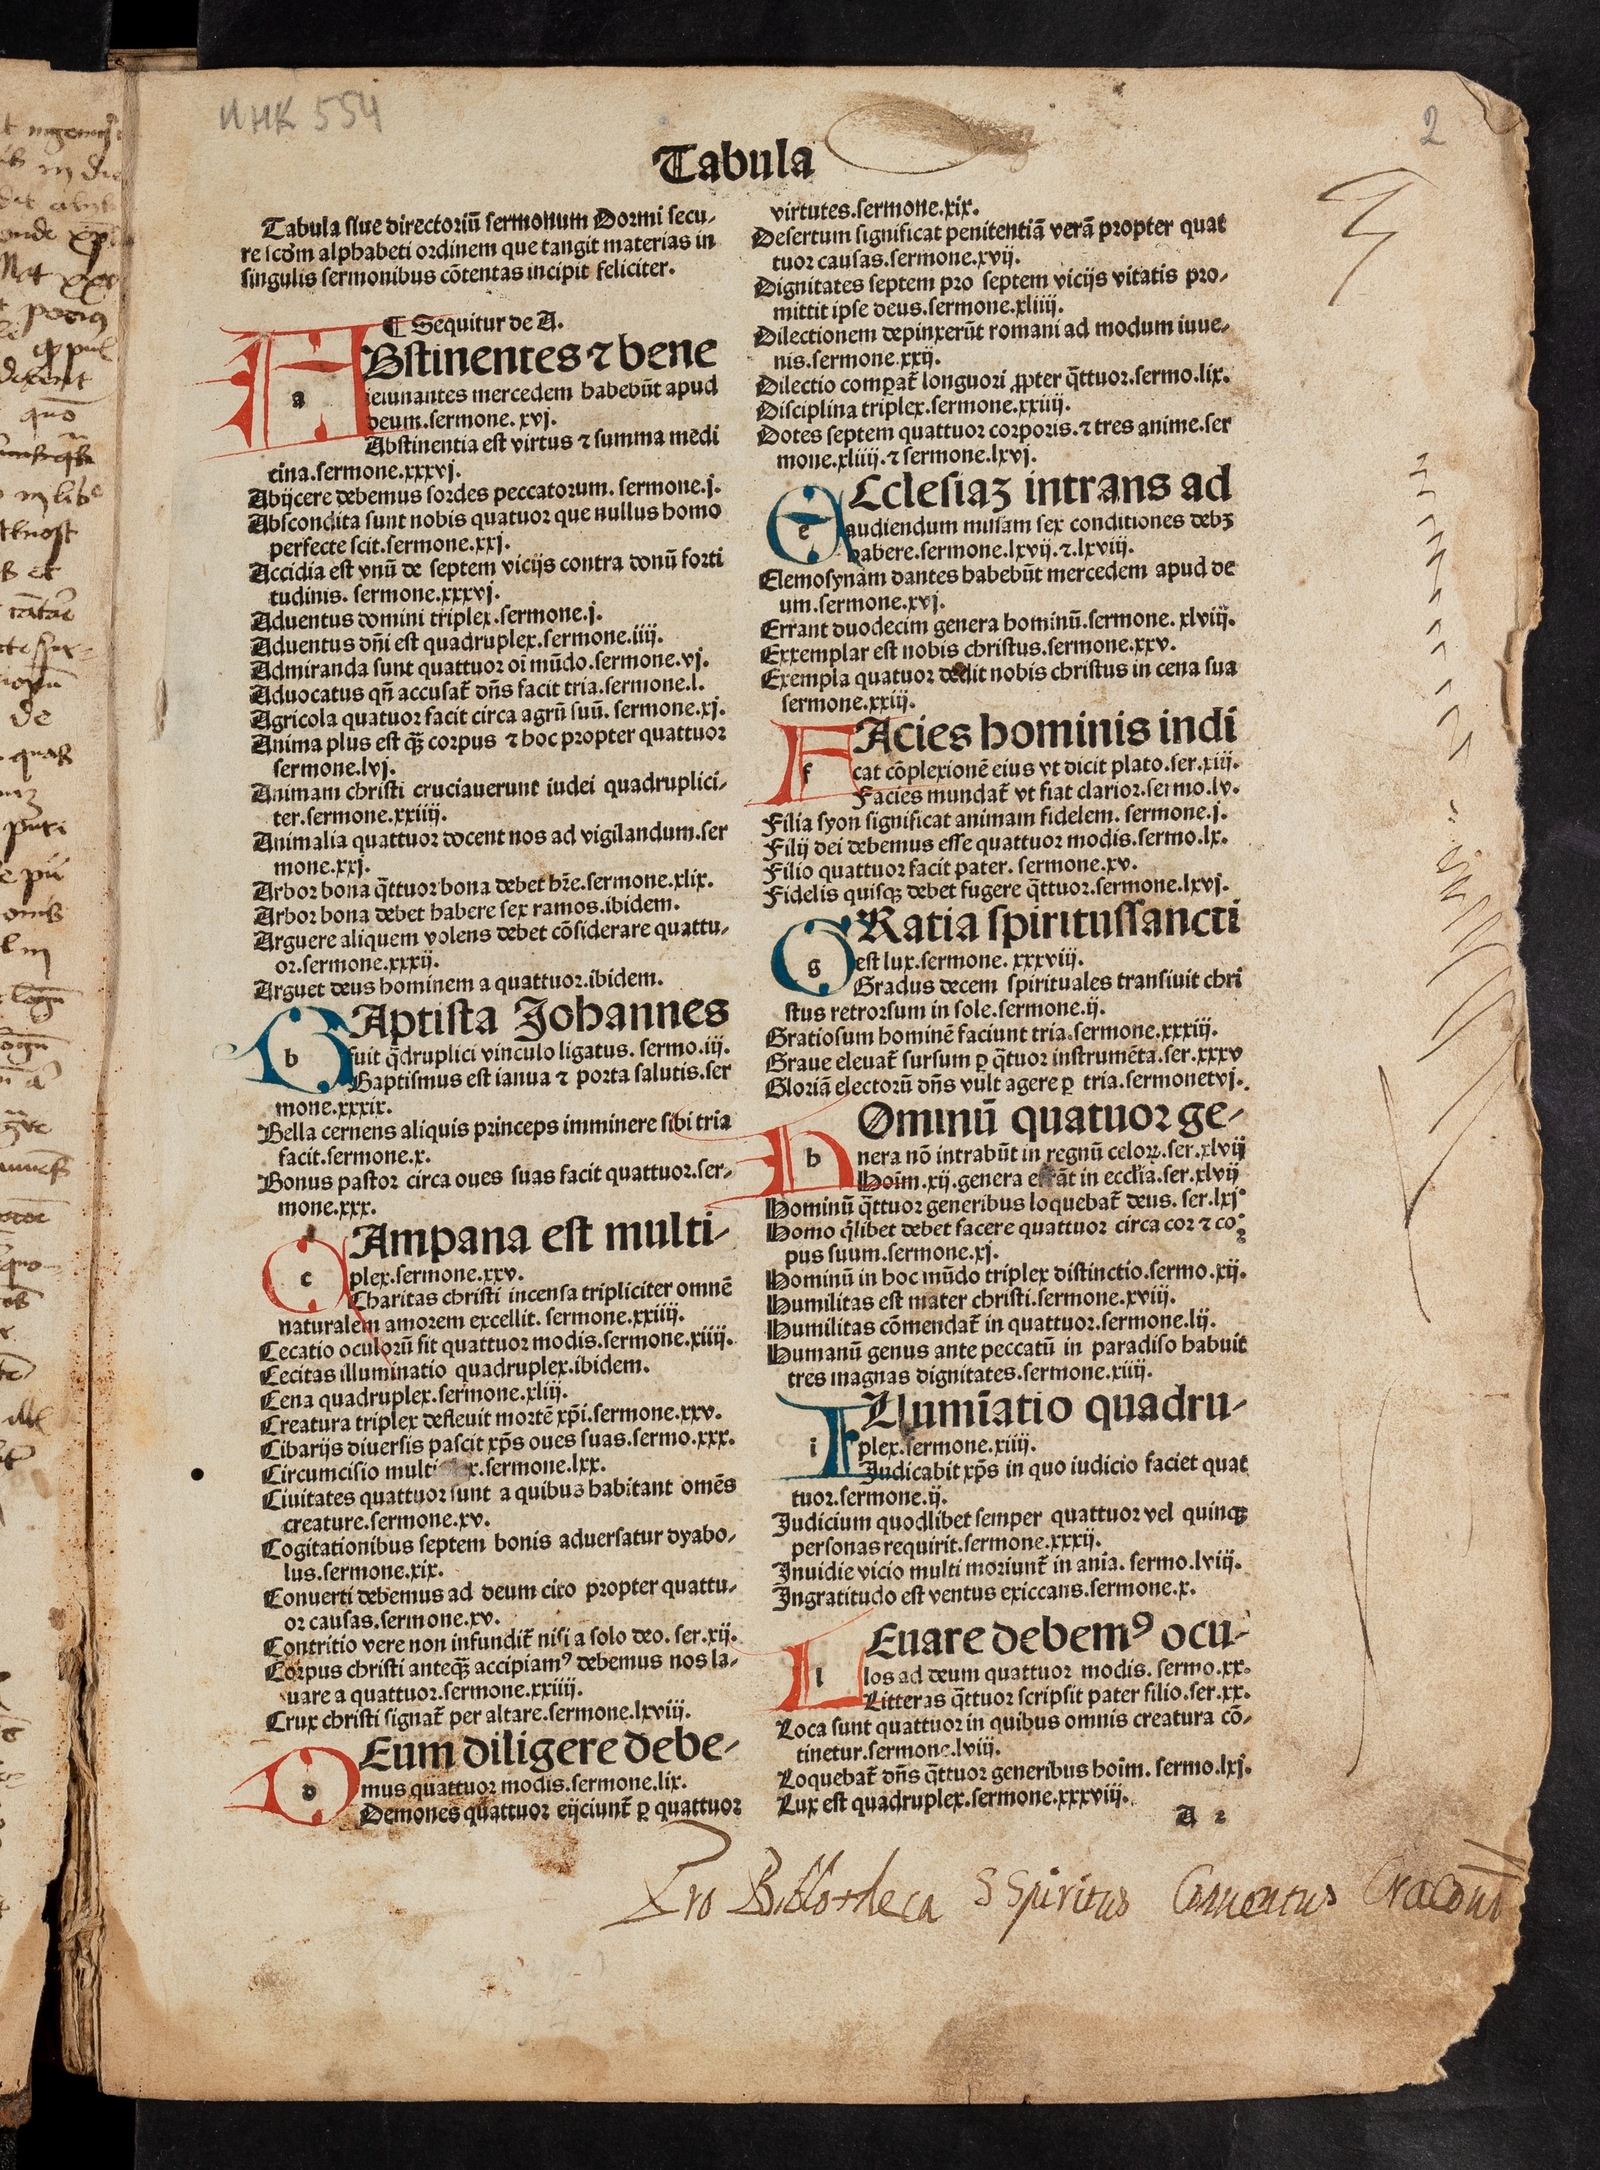 Tabula
Tabula siue directoriū sermonum Dormi secu-
re scďm alphabeti ordinem que tangit materias in
singulis sermonibus cōtentas incipit feliciter.
¶ Sequitur de A.
ABstinentes ⁊ bene
ieiunantes mercedem habebūt apud
deum.sermone. xvj.
Abstinentia est virtus ⁊ summa medi
cina.sermone.xxxvj.
Abijcere debemus sordes peccatorum. sermone.j.
Abscondita sunt nobis quatuor que nullus homo
perfecte scit.sermone.xxj.
Accidia est vnū de septem vicijs contra donū forti
tudinis. sermone.xxxvj.
Aduentus domini triplex.sermone.j.
Aduentus dn̄i est quadruplex.sermone.iiij.
Admiranda sunt quattuor oī mūdo.sermone.vj.
Aduocatus qn̄ accusat᷑ dn̄s facit tria.sermone.l.
Agricola quatuor facit circa agrū suū. sermone.xj.
Anima plus est q̄ꝫ corpus ⁊ hoc propter quattuor
sermone.lvj.
Animam christi cruciauerunt iudei quadruplici-
ter.sermone.xxiiij.
Animalia quattuor docent nos ad vigilandum.ser
mone.xxj.
Arbor bona q̄ttuor bona debet hr̄e.sermone.xlix.
Arbor bona debet habere sex ramos.ibidem.
Arguere aliquem volens debet cōsiderare quattu-
or.sermone.xxxij.
Arguet deus hominem a quattuor.ibidem.
BAptista Johannes
fuit q̄druplici vinculo ligatus. sermo.iij.
Baptismus est ianua ⁊ porta salutis.ser
mone.xxxix.
Bella cernens aliquis princeps imminere sibi tria
facit.sermone.x.
Bonus pastor circa oues suas facit quattuor.ser-
mone.xxx.
CAmpana est multi-
plex.sermone.xxv.
Charitas christi incensa tripliciter omnē
naturalem amorem excellit. sermone.xxiiij.
Cecatio oculorū fit quattuor modis.sermone.xiiij.
Cecitas illuminatio quadruplex.ibidem.
Cena quadruplex.sermone.xliij.
Creatura triplex defleuit mortē xp̄i.sermone.xxv.
Cibarijs diuersis pascit xp̄s oues suas.sermo.xxx.
Circumcisio multiplex.sermone.lxx.
Ciuitates quattuor sunt a quibus habitant omēs
creature.sermone.xv.
Cogitationibus septem bonis aduersatur dyabo-
lus.sermone.xix.
Conuerti debemus ad deum cito propter quattu-
or causas.sermone.xv.
Contritio vere non infundit᷑ nisi a solo deo. ser.xij.
Corpus christi anteq̄ꝫ accipiamꝰ debemus nos la-
uare a quattuor.sermone.xxiiij.
Crux christi signat᷑ per altare.sermone.lxviij.
DEum diligere debe-
mus quattuor modis.sermone.lix.
Demones quattuor eijciunt᷑ ꝑ quattuor
virtutes.sermone.xix.
Desertum significat penitentiā verā propter quat
tuor causas.sermone.xvij.
Dignitates septem pro septem vicijs vitatis pro-
mittit ipse deus.sermone.xliiij.
Dilectionem depinxerūt romani ad modum iuue-
nis.sermone.xxij.
Dilectio comparat᷑ longuori ꝓpter q̄ttuor.sermo.lix.
Disciplina triplex.sermone.xxiiij.
Dotes septem quattuor corporis.⁊ tres anime.ser
mone.xliiij.⁊ sermone.lxvj.
ECclesiaꝫ intrans ad
audiendum missam sex conditiones debꝫ
habere.sermone.lxvij.⁊.lxviij.
Elemosynam dantes habebūt mercedem apud de
um.sermone.xvj.
Errant duodecim genera hominū.sermone. xlviij.
Exxemplar est nobis christus.sermone.xxv.
Exempla quatuor dedit nobis christus in cena sua
sermone.xxiij.
FAcies hominis indi
cat cōplexionē eius vt dicit plato.ser.xiij.
Facies mundat᷑ vt fiat clarior.sermo.lv.
Filia syon significat animam fidelem. sermone.j.
Filij dei debemus esse quattuor modis.sermo.lx.
Filio quattuor facit pater. sermone.xv.
Fidelis quisqꝫ debet fugere q̄ttuor.sermone.lxvj.
GRatia spiritussancti
est lux.sermone. xxxviij.
Gradus decem spirituales transiuit chri
stus retrorsum in sole.sermone.ij.
Gratiosum hominē faciunt tria.sermone.xxxiij.
Graue eleuat᷑ sursum ꝑ q̄tuor instrumēta.ser.xxxv
Gloriā electorū dn̄s vult agere ꝑ tria.sermonetvj.
HOminū quatuor ge-
nera nō intrabūt in regnū celoꝝ.ser.xlvij
Hoīm.xij.genera errāt in ecclīa.ser.xlvij
Hominū q̄ttuor generibus loquebat᷑ deus. ser.lxj
Homo q̄libet debet facere quattuor circa cor ⁊ cor
pus suum.sermone.xj.
Hominū in hoc mūdo triplex distinctio.sermo.xij.
Humilitas est mater christi.sermone.xviij.
Humilitas cōmendat᷑ in quattuor.sermone.lij.
Humanū genus ante peccatū in paradiso habuit
tres magnas dignitates.sermone.xiiij.
ILlumīatio quadru-
plex.sermone.xiiij.
Judicabit xp̄s in quo iudicio faciet quat
tuor.sermone.ij.
Judicium quodlibet semper quattuor vel quinqꝫ
personas requirit.sermone.xxxij.
Inuidie vicio multi moriunt᷑ in anīa. sermo.lviij.
Ingratitudo est ventus exiccans.sermone.x.
LEuare debemꝰ ocu-
los ad deum quattuor modis. sermo.xx.
Litteras q̄ttuor scripsit pater filio.ser.xx.
Loca sunt quattuor in quibus omnis creatura cō-
tinetur.sermone.lviij.
Loquebat᷑ dn̄s q̄ttuor generibus hoīm. sermo.lxj.
Lux est quadruplex.sermone.xxxviij.
A 2
Pro Bibliotheca S Spiritus Conuentus
554
2